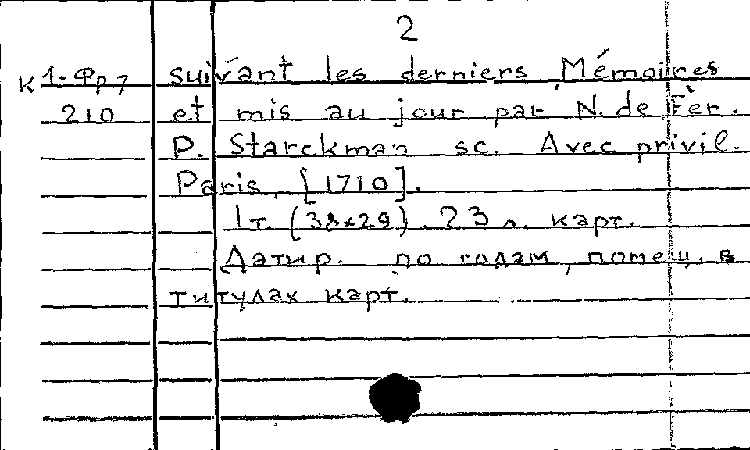 2
К 1-Фр 7
210
suivant les derniers Mémoires
et mis au jour par N. de Fèr.
P. Starckman sc. Avec privil.
Paris, [1710].
1 т. (38x29). 23 л. карт.
Датир. по годам, помещ. в
титулах карт.